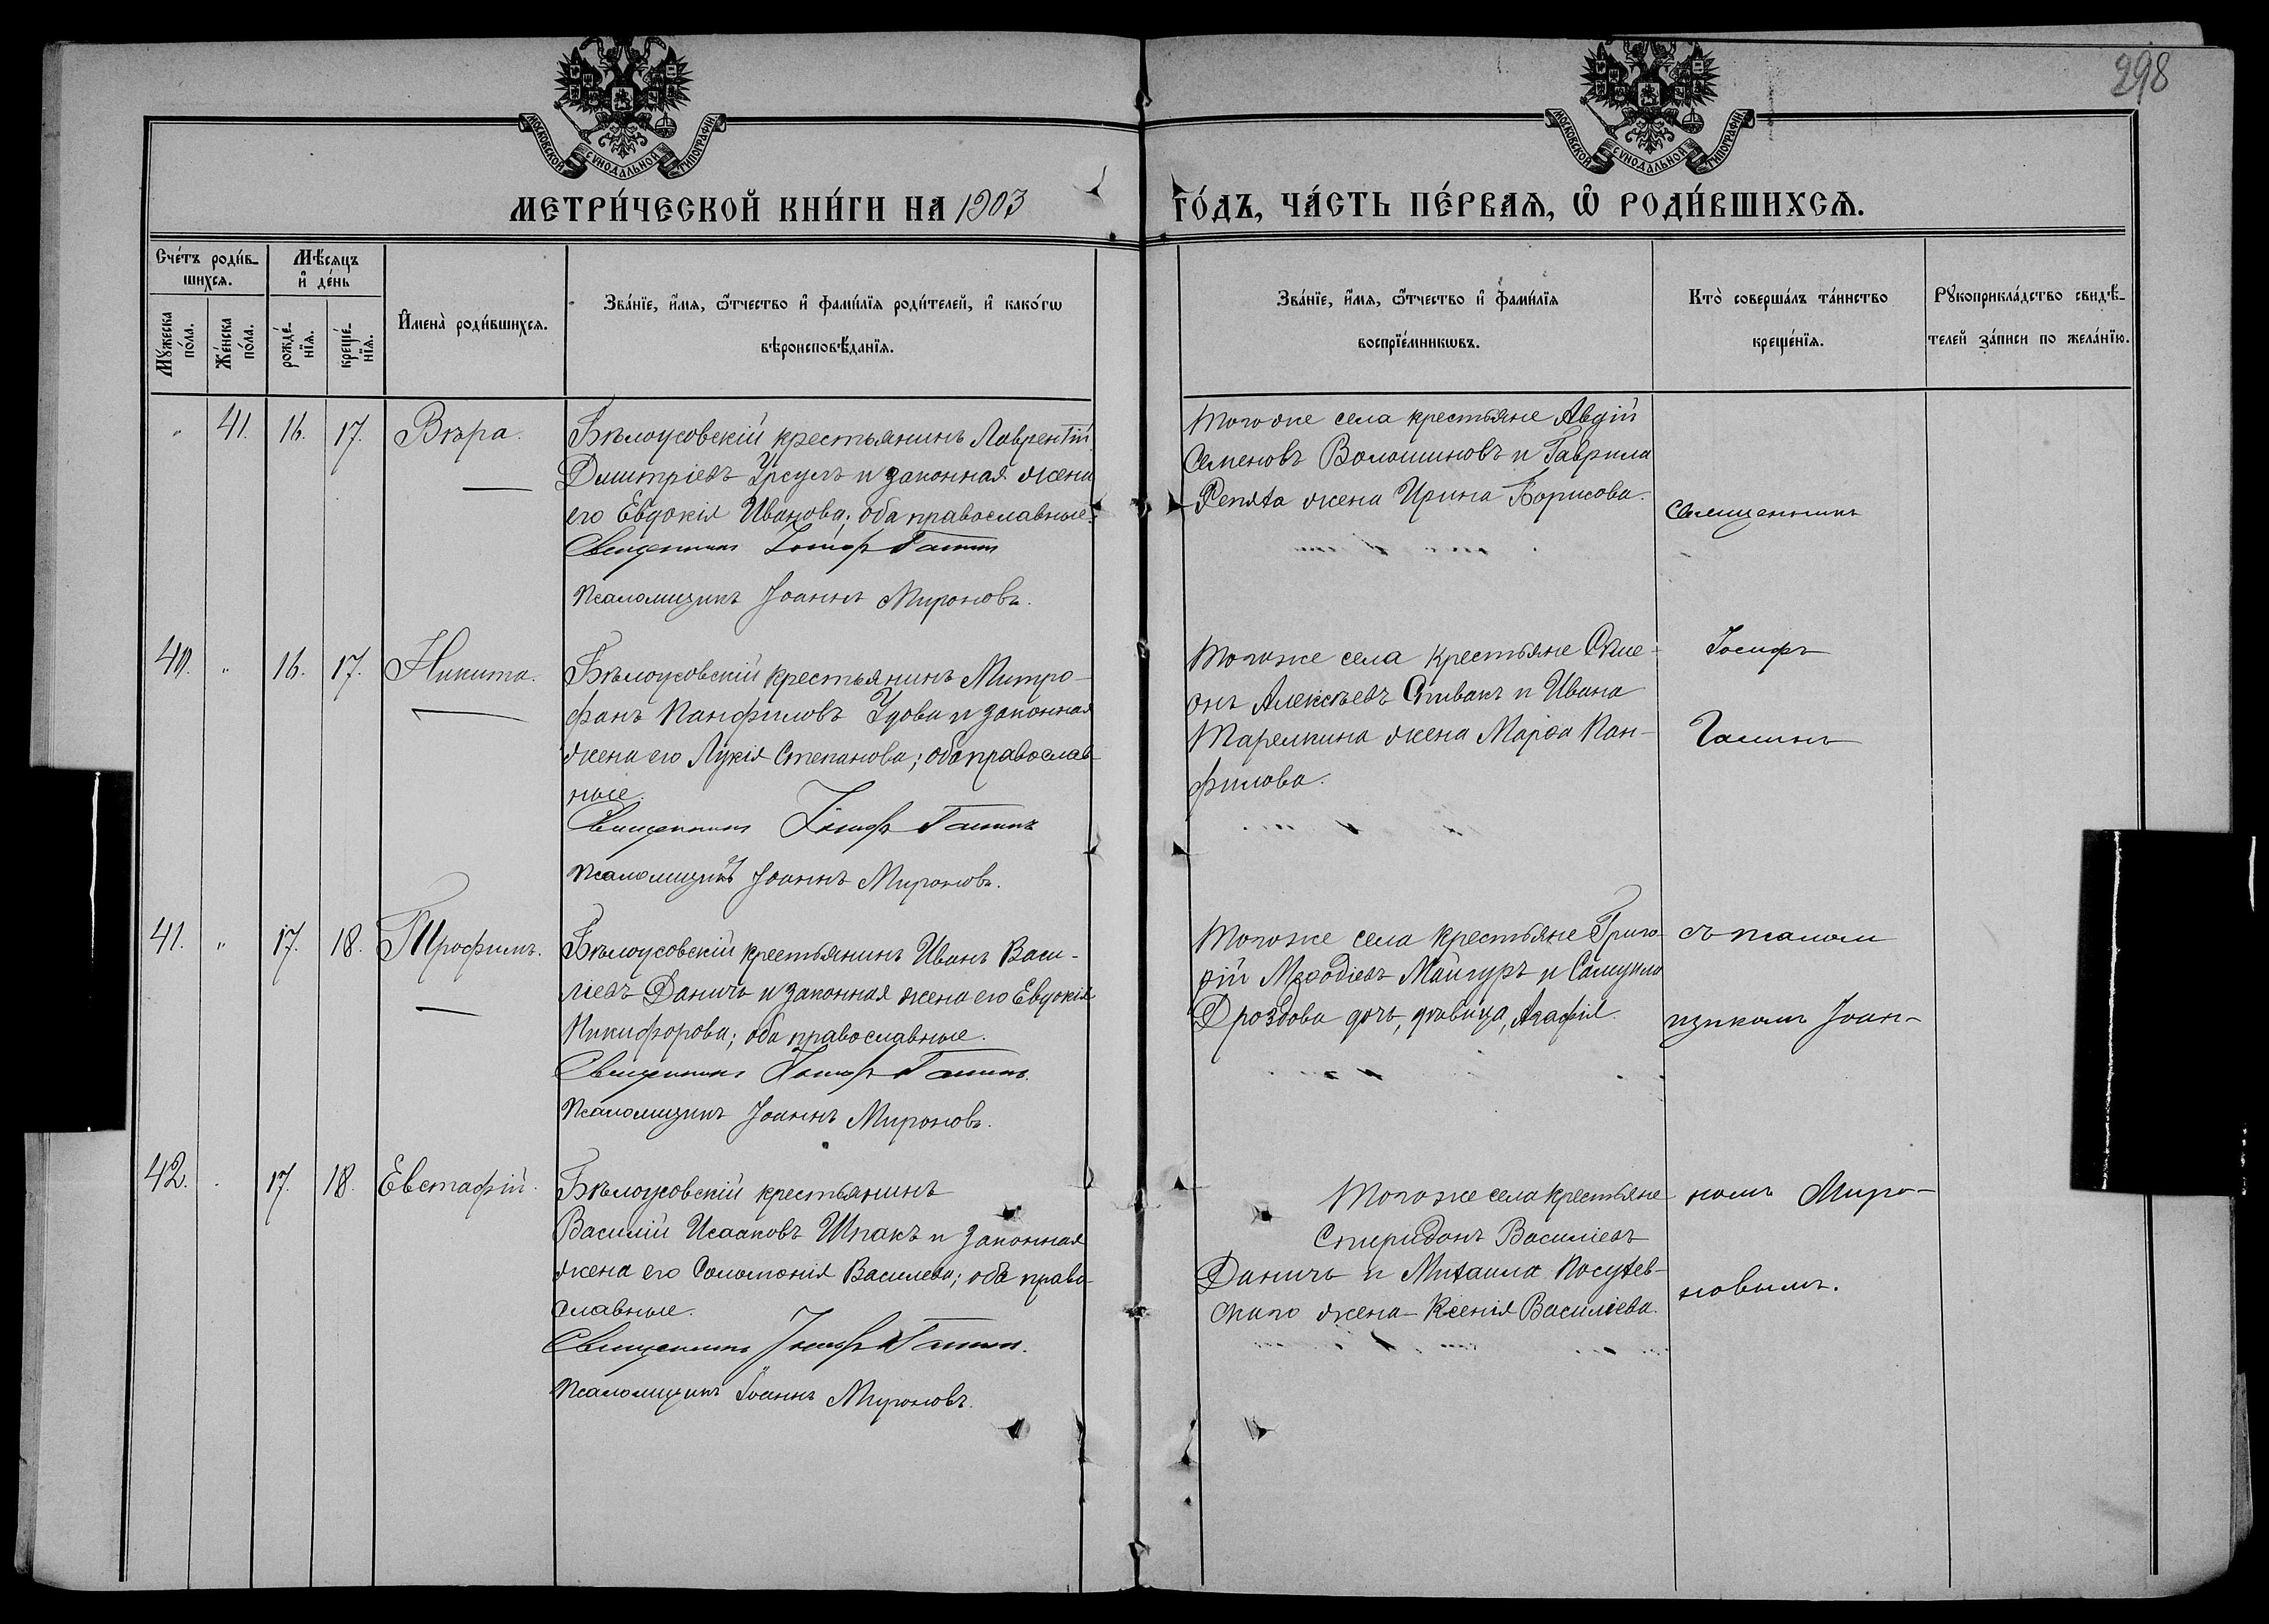 298
МОСКОВСКОЙ СѴНОДАЛЬНОЙ ТИПОГРАФІИ
МОСКОВСКОЙ СѴНОДАЛЬНОЙ ТИПОГРАФІИ
МЕТРИ́ЧЕСКОЙ КНИ́ГИ НА 1903
ГО́ДЪ, ЧА́СТЬ ПЕ́РВАЯ, Ѽ РОДИ́ВШИХСЯ.
Сче́тъ роди́в-
шихся.
Мꙋ́жеска по́ла.
Же́нска по́ла.
Мѣ́сяцъ
и҆ де́нь
рожде́-
нїя.
креще́-
нїя.
И҆мена̀ роди́вшихся.
Зва́нїе, и҆́мя, ѻ҆́тчество и҆ фами́лїя роди́телей, и҆ како́гѡ
вѣроисповѣ́данїя.
Зва́нїе, и҆́мя, ѻ҆́тчество и҆ фами́лїя
воспрїе́мникѡвъ.
Кто̀ соверша́лъ та́инство
креще́нїя.
Рꙋкоприкла́дство свидѣ́-
телей за́писи по жела́нїю.
" 41. 16. 17. Вѣра.
Бѣлоусовскій крестьянинъ Лаврентій
Димитріевъ Урсулъ и законная жена
его Евдокія Иванова; оба православные.
Священникъ Іосифъ Гашинъ
Псаломщикъ Іоаннъ Мироновъ.
Того же села крестьяне Авдій
Семеновъ Волошиновъ и Гаврила
Репята жена Ирина Борисова.
Священникъ
40. " 16. 17. Никита.
Бѣлоусовскій крестьянинъ Митро-
фанъ Панфиловъ Удова и законная
жена его Лукія Степанова; оба православ-
ные.
Священникъ Іосифъ Гашинъ
Псаломщикъ Іоаннъ Мироновъ.
Того же села крестьяне Симе-
онъ Алексѣевъ Спивакъ и Ивана
Тарелкина жена Марѳа Пан-
филова.
Іосифъ
Гашинъ
41. " 17. 18. Трофимъ.
Бѣлоусовскій крестьянинъ Иванъ Васи-
льевъ Даничъ и законная жена его Евдокія
Никифорова; оба православные.
Священникъ Іосифъ Гашинъ.
Псаломщикъ Іоаннъ Мироновъ.
Того же села крестьяне Григо-
рій Меѳодіевъ Майгуръ и Самуила
Дроздова дочь, дѣвица, Агафія.
съ псалом
щикомъ Іоан-
42. 17. 18. Евстафій.
Бѣлоусовскій крестьянинъ
Василій Исааковъ Шпакъ и законная
жена его Соломонія Василева; оба право-
славные.
Священникъ Іосифъ Гашинъ.
Псаломщикъ Іоаннъ Мироновъ.
Того же села крестьяне
Спиридонъ Василіевъ
Даничъ и Михаила
жена Ксенія Василіева.
номъ Миро-
новымъ.